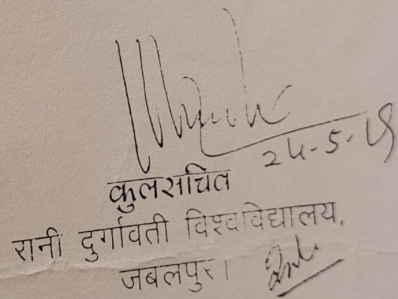 24-5-19
कुलसचिव
रानी दुर्गावती विश्वविद्यालय,
जबलपुर।